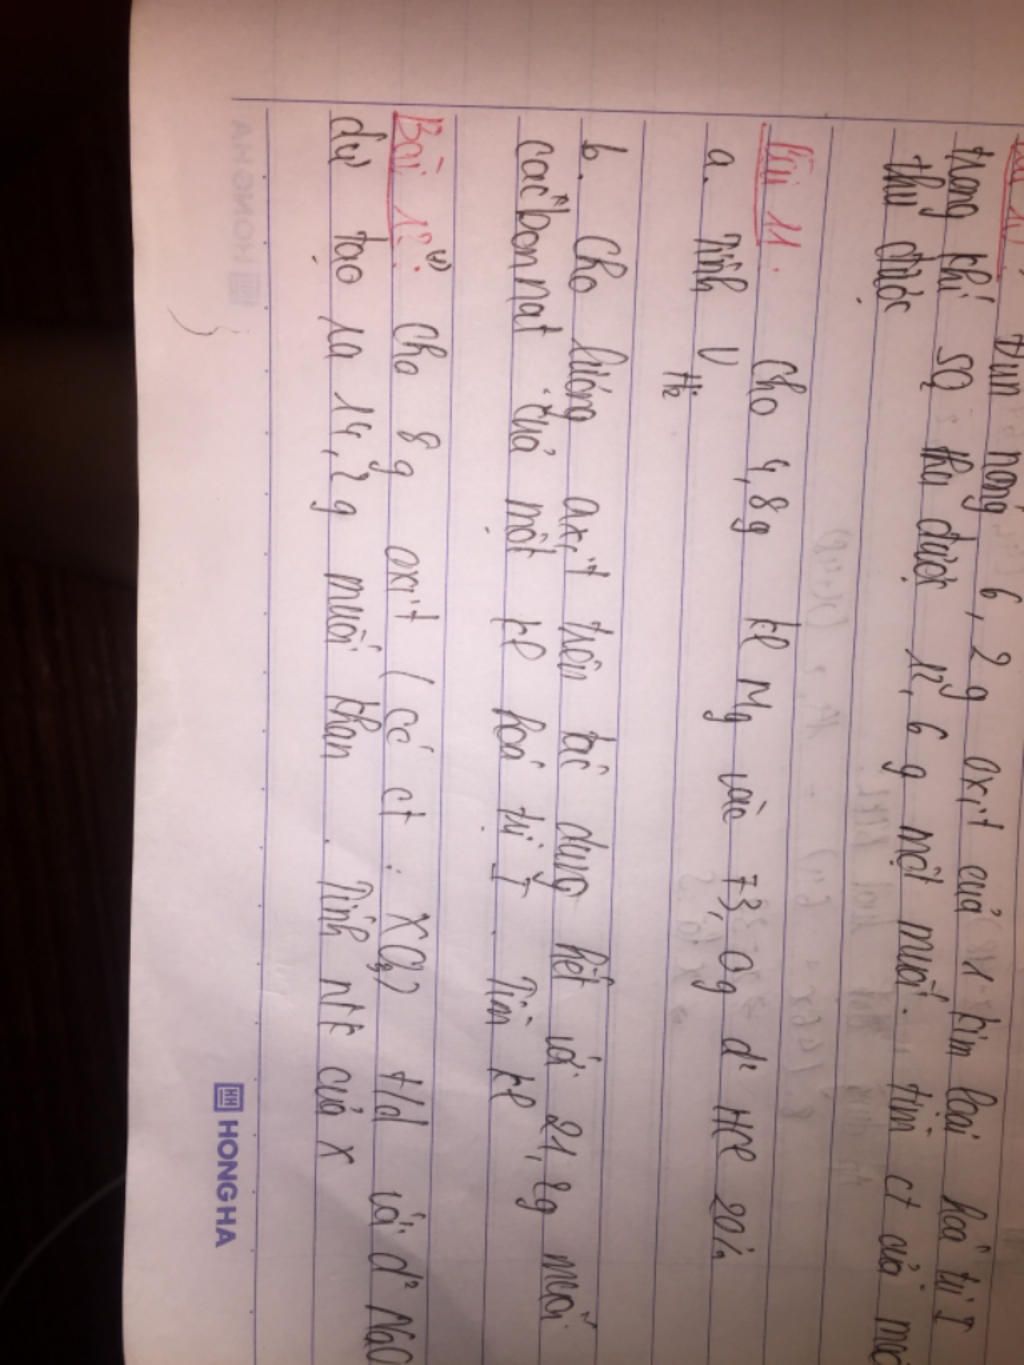 Đun nóng 6,2g oxit của kim loại hoá trị I
trong khí SO2 thu được 12,6 g một muối. Tìm ct của mà
thu được
Bài 11. Cho 4,8g kl Mg vào 73,0g d² HCl 20%
a. Tính V H2
b. Cho lượng axit trên tác dụng hết với 21,2g muối
cacbonnat của một kl hoá trị I. Tìm kl
Bài 12: (*) Cho 8g oxit (có ct: XO3) t/d với d² NaO
dư tạo ra 14,2g muối khan. Tính ntk của X
HONG HA